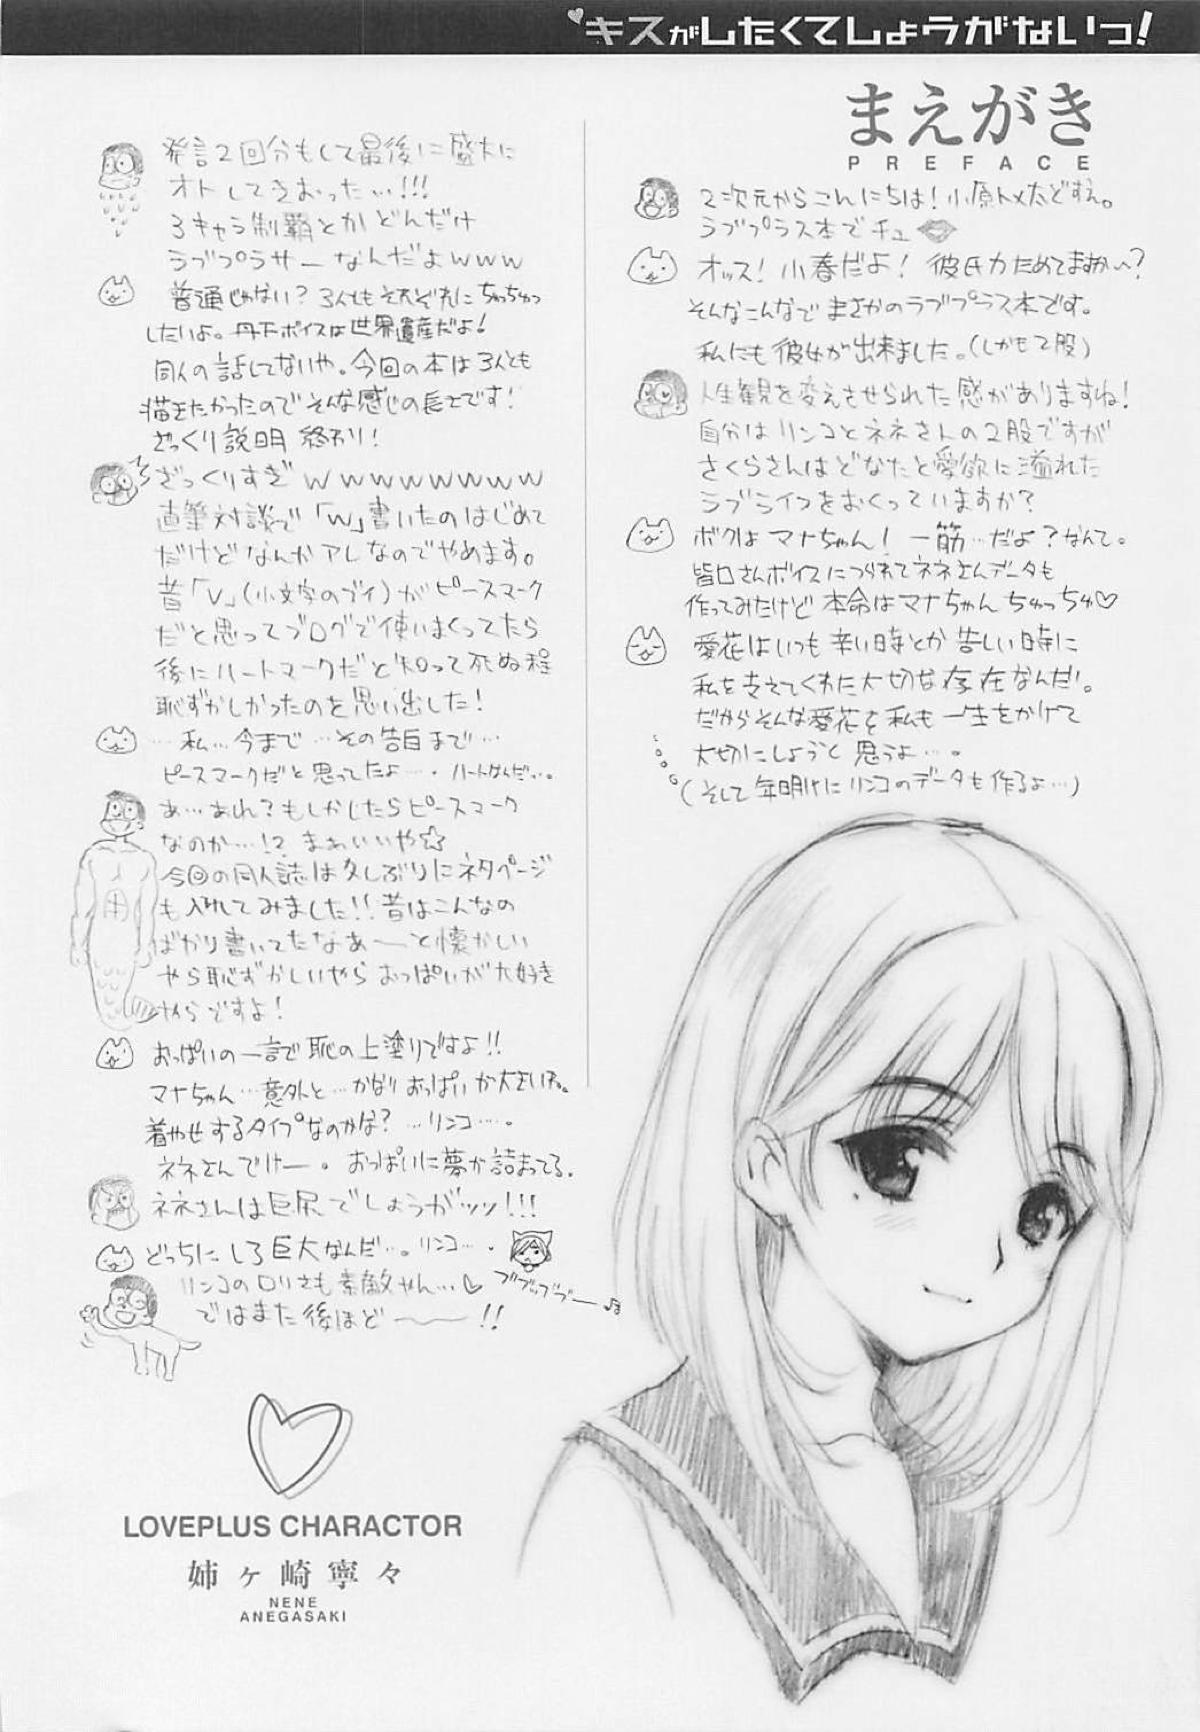 キスがしたくてしょうがないっ!
まえがき
PREFACE
2次元からこんにちは!小原トメ太どすえ。
ラブプラス本でチュ
オッス!小春だよ!彼氏力ためてますかー?
そんなこんなでまさかのラブプラス本です。
私にも彼女が出来ました。(しかも2股)
人生観を変えさせられた感がありますね!
自分はリンコとネネさんの2股ですが
さくらさんはどなたと愛欲に溢れた
ラブライフをおくっていますか?
ボクはマナちゃん!一筋…だよ?なんて。
皆口さんボイスにつられてネネさんデータも
作ってみたけど本命はマナちゃんちゅっちゅ♡
愛花はいつも辛い時とか苦しい時に
私を支えてくれた大切な存在なんだ。
だからそんな愛花を私も一生をかけて
大切にしようと思うよ…。
(そして年明けにリンコのデータも作るよ…)
発言2回分もして最後に盛大に
オトしてきおった…!!!
3キャラ制覇とかどんだけ
ラブプラサーなんだよwww
普通じゃない?3人ともそれぞれにちゅっちゅっ
したいよ。丹下ボイスは世界遺産だよ!
同人の話してないや。今回の本は3人とも
描きたかったのでそんな感じの長さです!
ざっくり説明終わり!
ざっくりすぎwwwwwwww
直筆対談で「w」書いたのはじめて
だけどなんかアレなのでやめます。
昔「v」(小文字のブイ)がピースマーク
だと思ってブログで使いまくってたら
後にハートマークだと知って死ぬ程
恥ずかしかったのを思い出した!
…私…今まで…その告白まで…
ピースマークだと思ってたよ…。ハートなんだ…。
あ…あれ?もしかしたらピースマーク
なのか…!?まあいいや☆
今回の同人誌は久しぶりにネタページ
も入れてみました!!昔はこんなの
ばかり書いてたなあ〜と懐かしい
やら恥ずかしいやらおっぱいが大好き
やらですよ!
おっぱいの一言で恥の上塗りですよ!!
マナちゃん…意外と…かなりおっぱいが大きいね。
着やせするタイプなのかな?…リンコ…。
ネネさんでけー。おっぱいに夢が詰まってる。
ネネさんは巨尻でしょうがッッ!!!
どっちにしろ巨大なんだ…。リンコ…。
ブブッブブー♪
リンコのロリさも素敵やん…♡
ではまた後ほど〜〜!!
LOVEPLUS CHARACTOR
姉ヶ崎寧々
NENE
ANEGASAKI